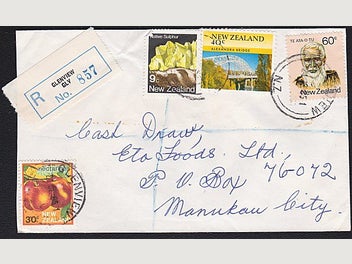 GLENVIEW
GLY
R No. 857
Native Sulphur
9c
New Zealand
NEW ZEALAND
40c
ALEXANDRA BRIDGE
TE ATA-O-TU
60c
New Zealand
NZ
Cash Draw,
Eta Foods. Ltd.
P O Box 76072
Manukau City.
nectarines
30c
NEW ZEALAND
GLENVIEW